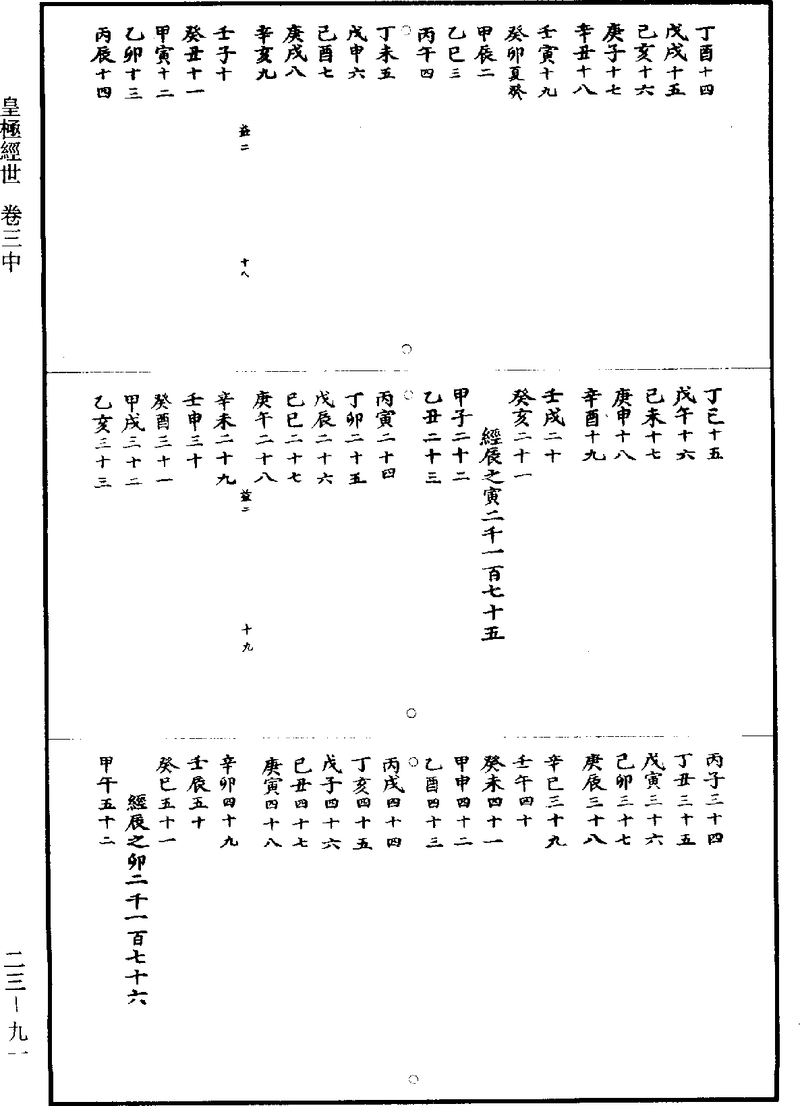 丁酉十四
戊戌十五
己亥十六
庚子十七
辛丑十八
壬寅十九
癸卯夏癸
甲辰二
乙巳三
丙午四
丁未五
戊申六
己酉七
庚戌八
辛亥九
益二 十八
壬子十
癸丑十一
甲寅十二
乙卯十三
丙辰十四
丁巳十五
戊午十六
己未十七
庚申十八
辛酉十九
壬戌二十
癸亥二十一
經辰之寅二千一百七十五
甲子二十二
乙丑二十三
丙寅二十四
丁卯二十五
戊辰二十六
己巳二十七
庚午二十八
益二 十九
辛未二十九
壬申三十
癸酉三十一
甲戌三十二
乙亥三十三
丙子三十四
丁丑三十五
戊寅三十六
己卯三十七
庚辰三十八
辛巳三十九
壬午四十
癸未四十一
甲申四十二
乙酉四十三
丙戌四十四
丁亥四十五
戊子四十六
己丑四十七
庚寅四十八
辛卯四十九
壬辰五十
癸巳五十一
經辰之卯二千一百七十六
甲午五十二
皇極經世 卷三中
二三—九一